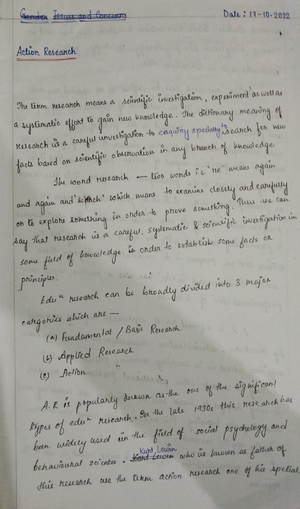 Gender Issues and Concerns
Date: 17-10-2022
Action Research
The term research means a scientific investigation, experiment as well as
a systematic effort to gain new knowledge. The dictionary meaning of
research is a careful investigation to enquiry specially search for new
facts based on scientific observation in any branch of knowledge
The word research — two words i.e 're' means again
and again and 'search' which means to examine closely and carefully
or to explore something in order to prove something. Thus we can
say that research is a careful, systematic & scientific investigation in
some field of knowledge in order to establish some facts or
principles.
Eduⁿ research can be broadly divided into 3 major
categories which are —
(a) Fundamental / Basic Research
(b) Applied Research
(c) Action "
A.R is popularly known as the one of the significant
types of eduⁿ research. In the late 1930s this research has
been widely used in the field of social psychology and
Kurt Lewin
behavioural science. Kurd Lewin who is known as father of
this research use the term action research one of his special